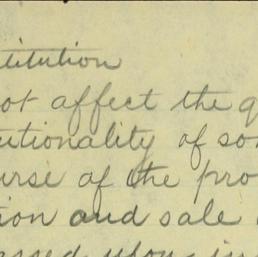 titution
ot affect the q
utionality of so
urse of the pro
ion and sale
assed upon in